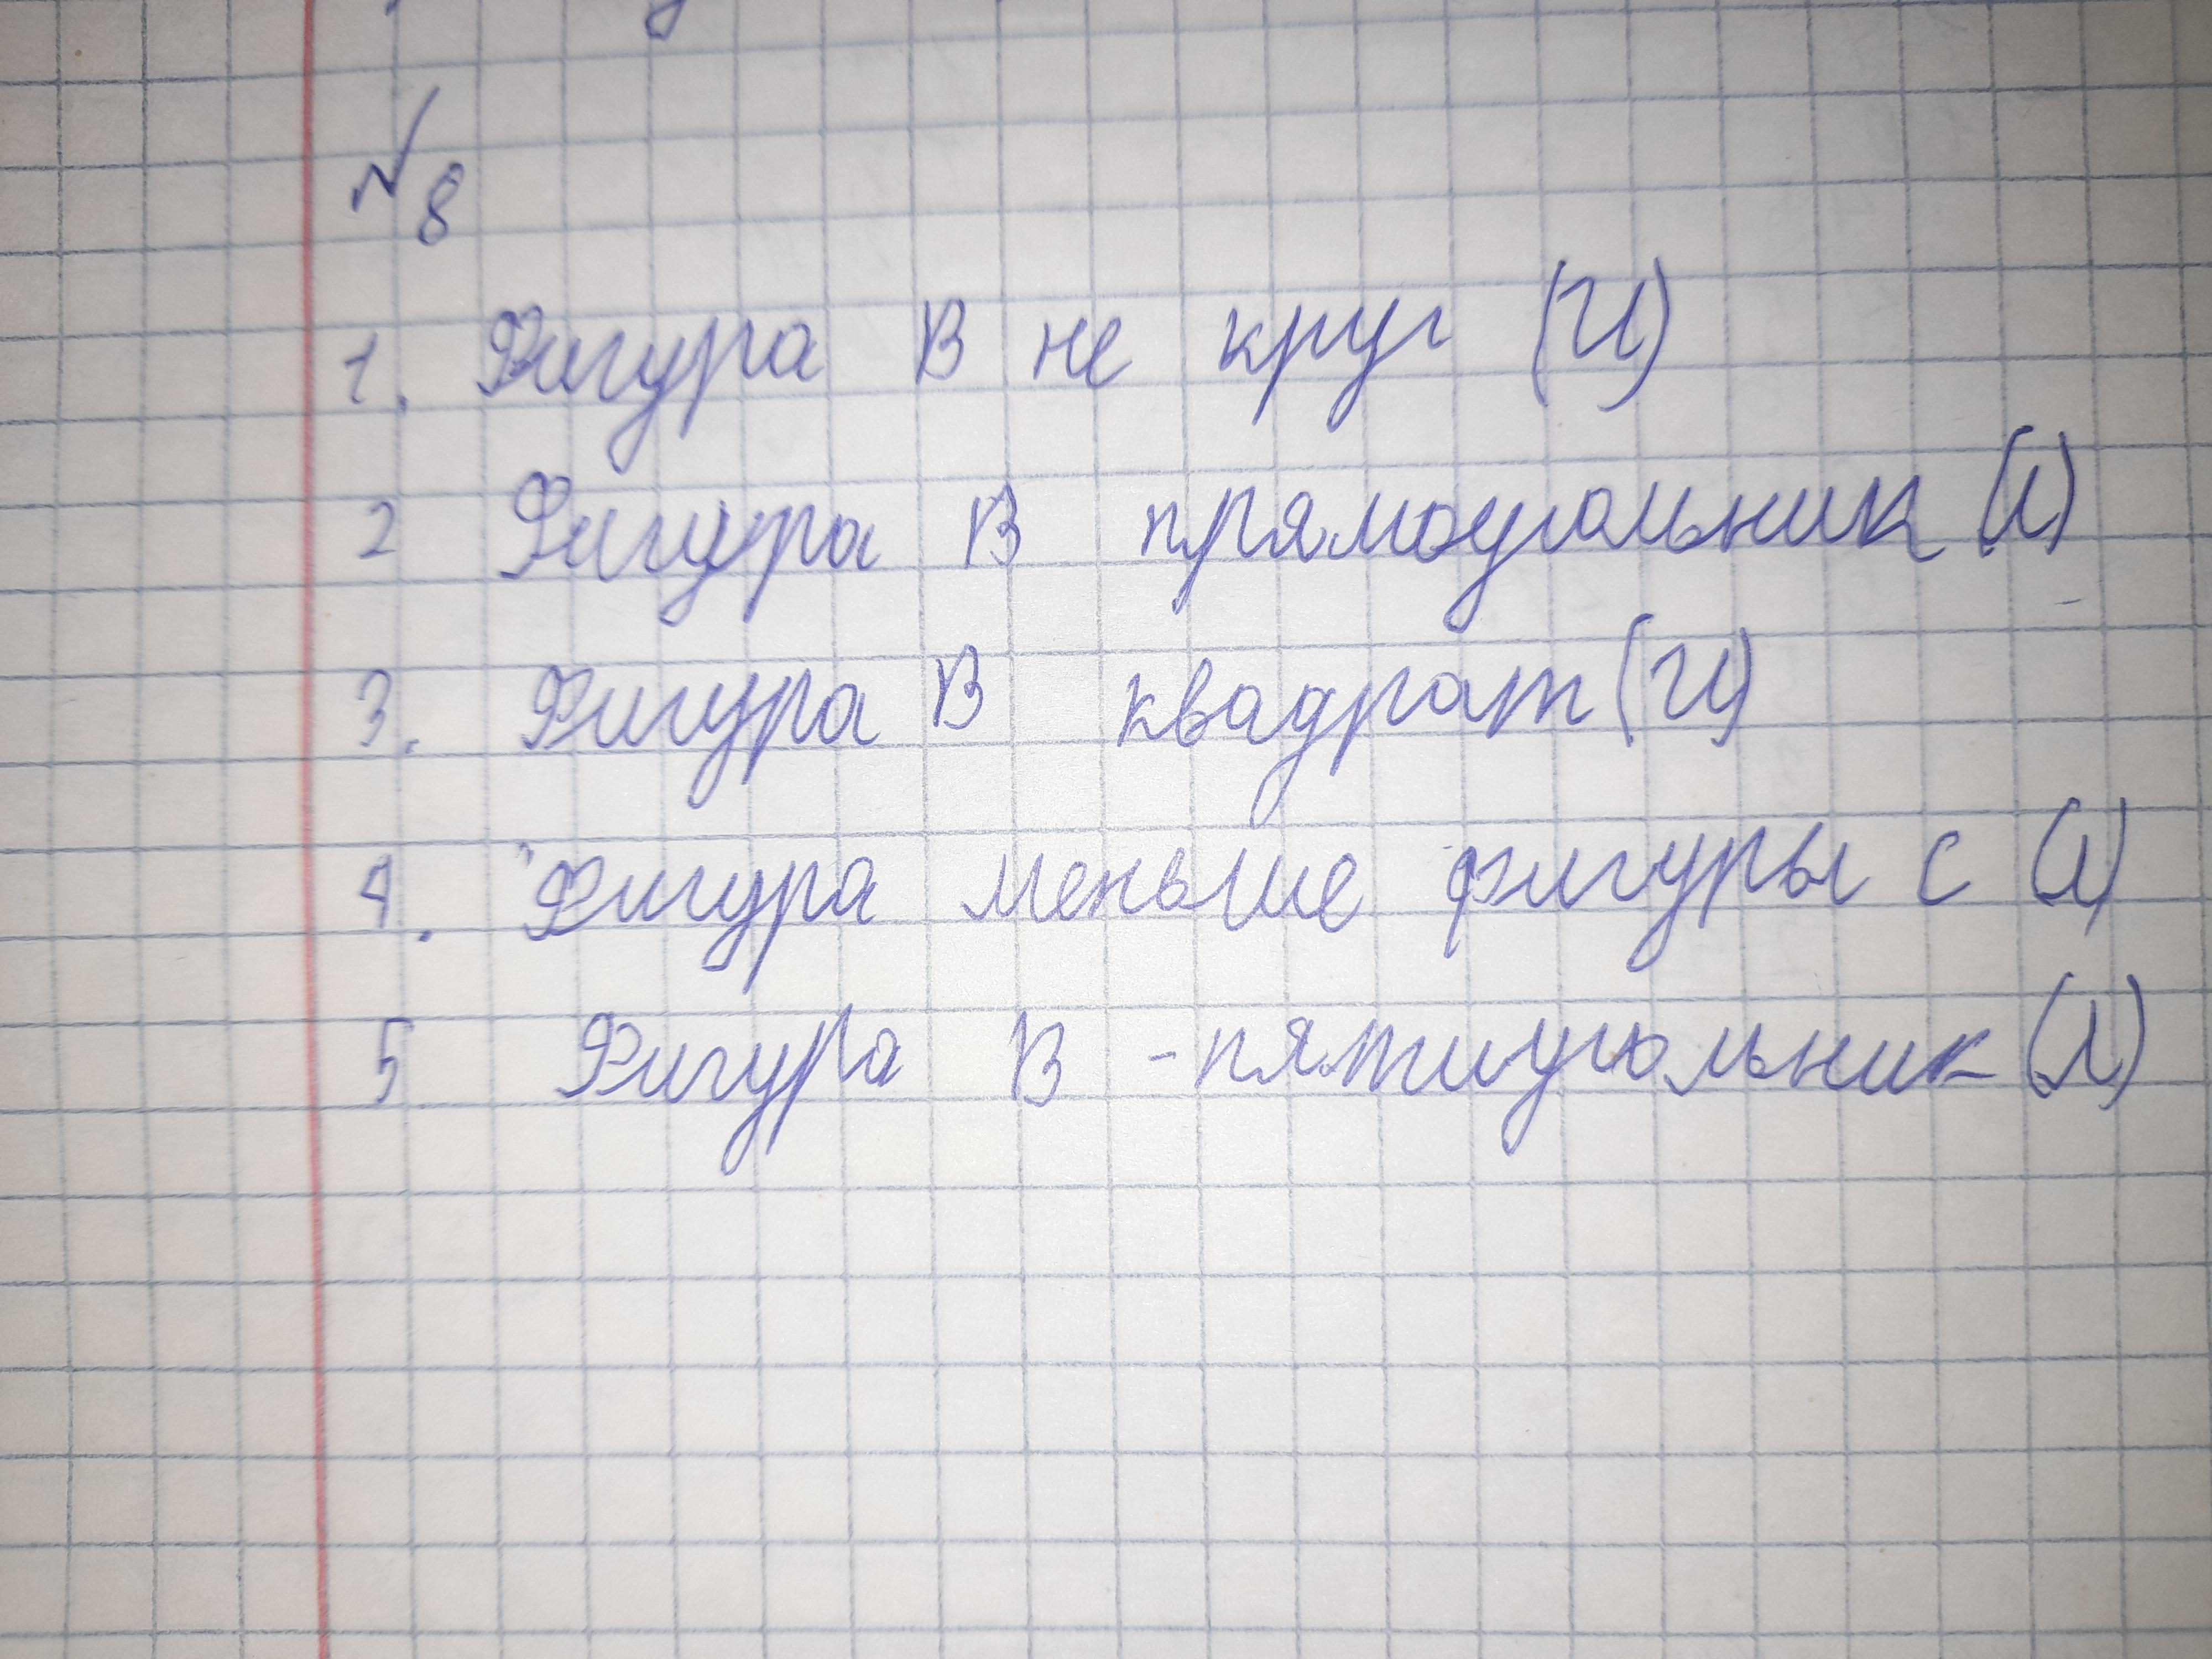 №8
1. Фигура В не круг (И)
2 Фигура В прямоугольник (Л)
3. Фигура В квадрат (И)
4. Фигура меньше фигуры с (Л)
5 Фигура В - пятиугольник (Л)